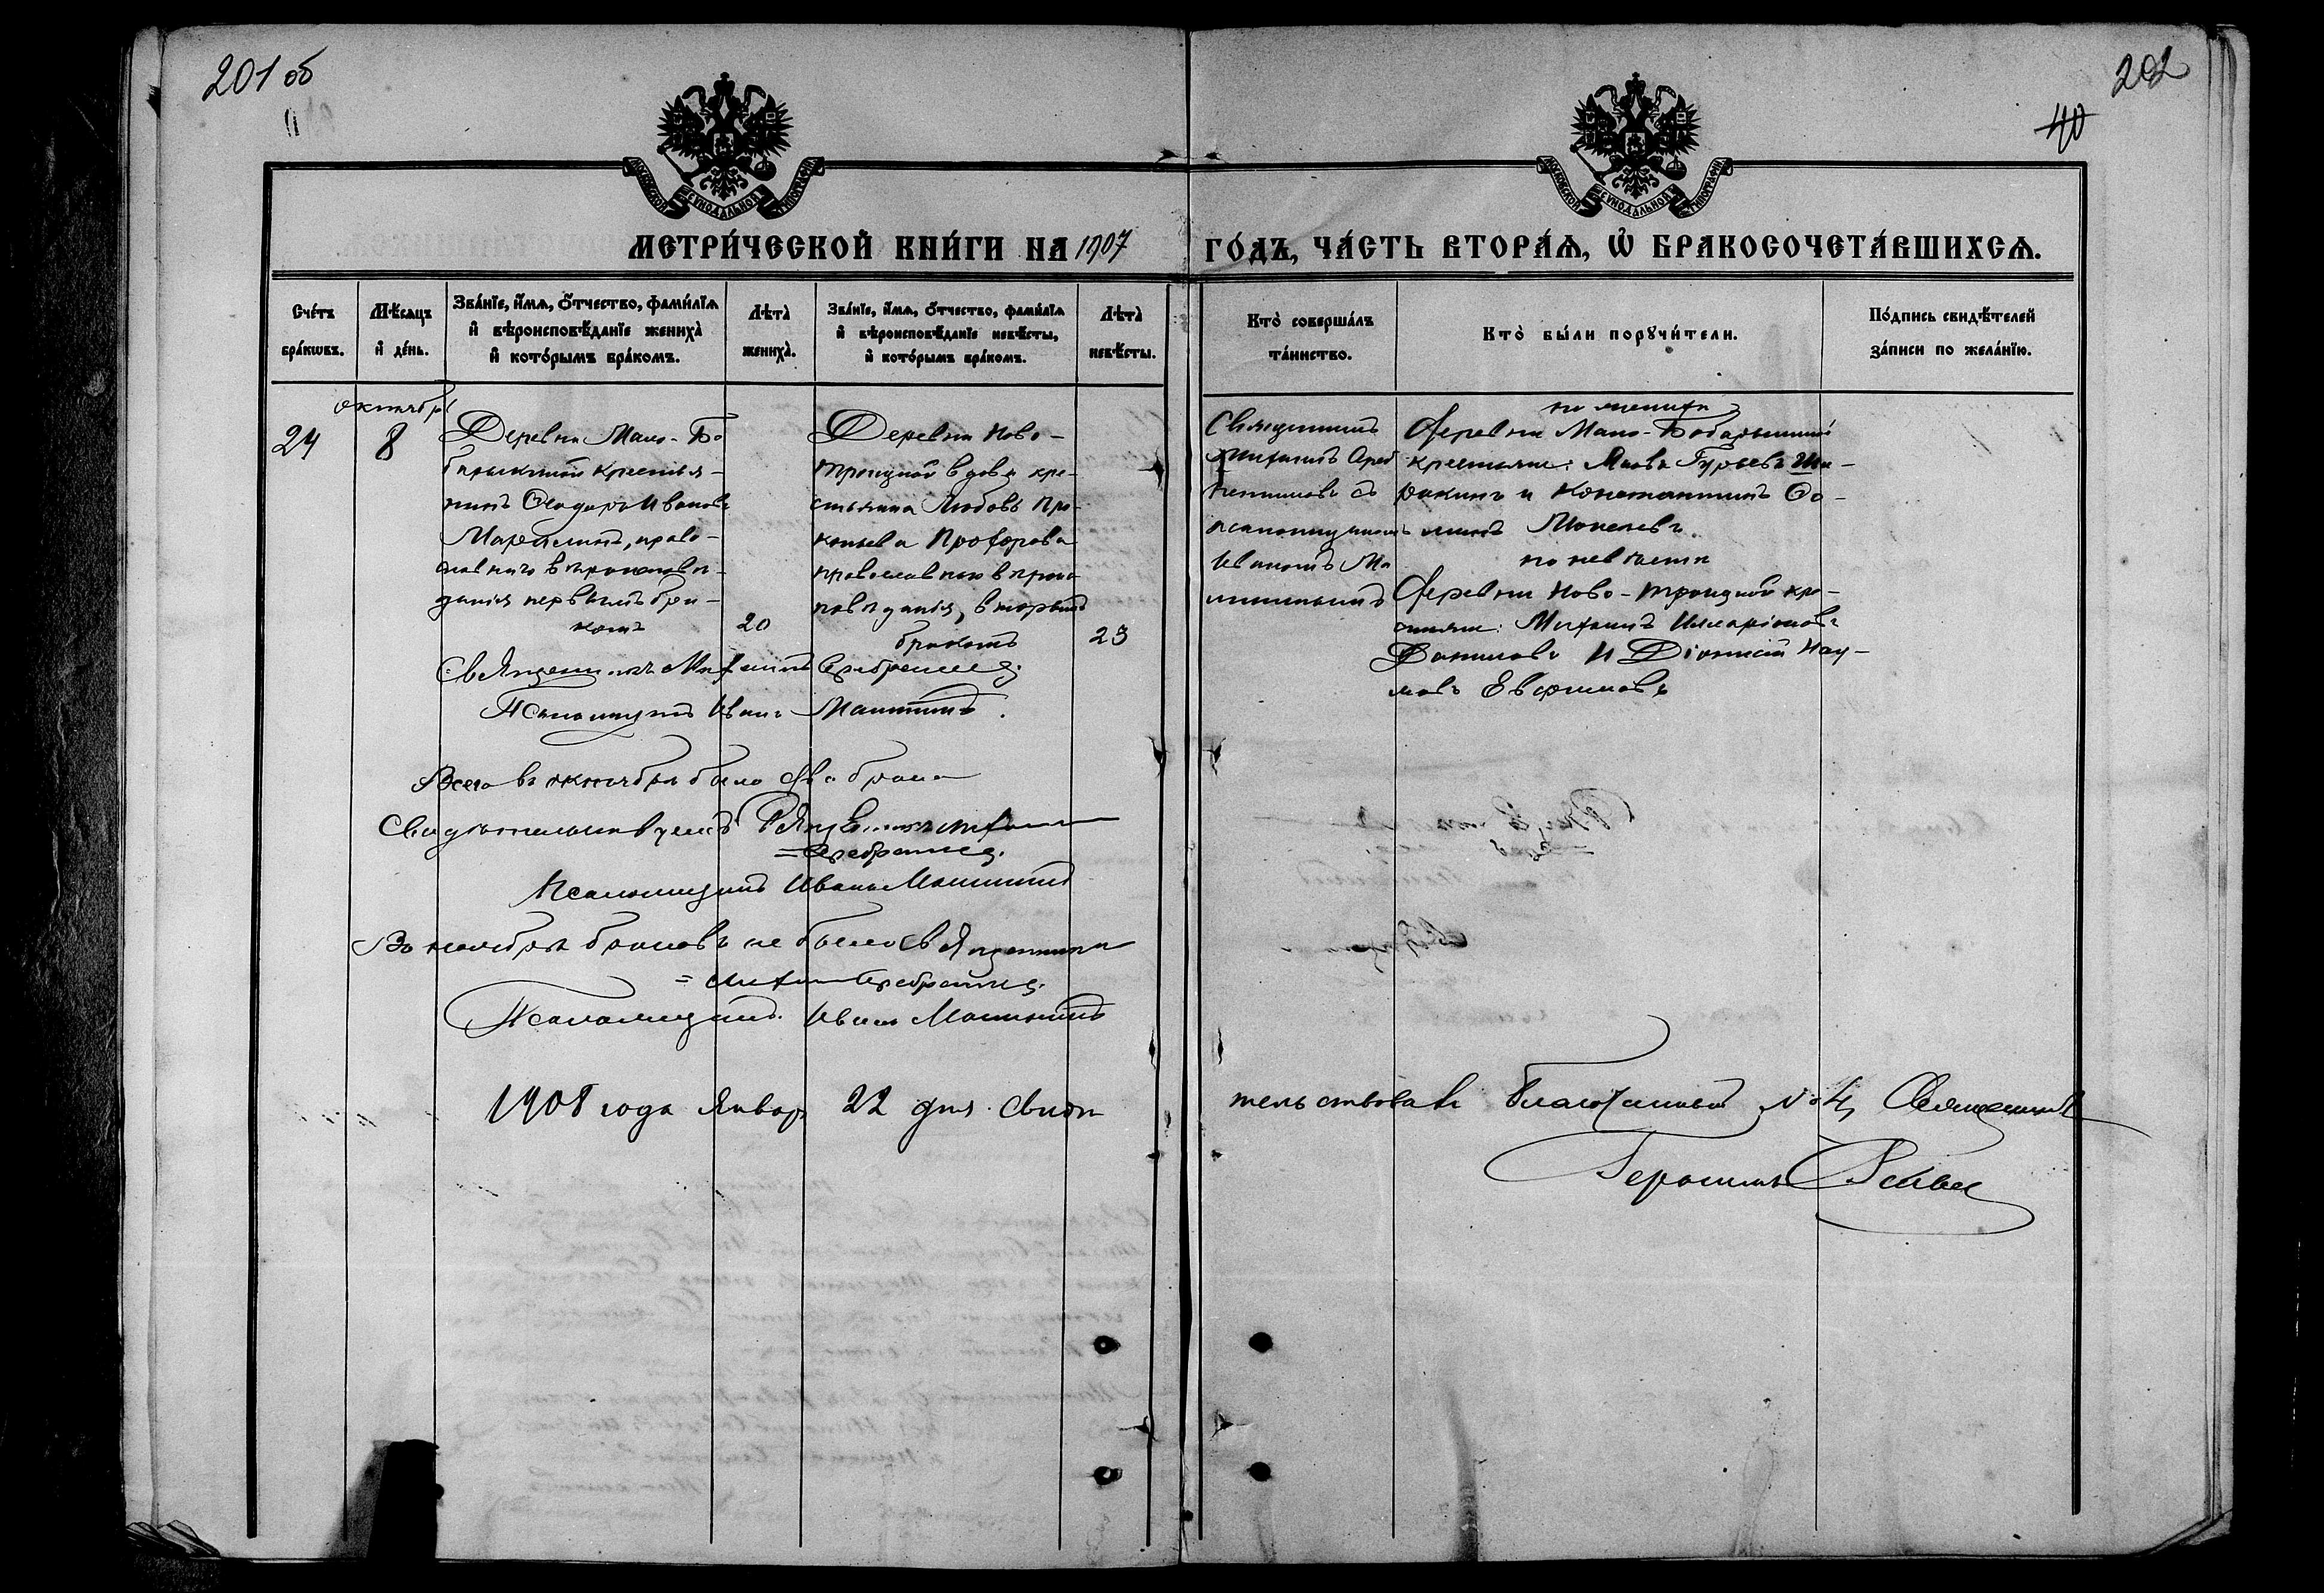 201 об
202
40
МОСКОВСКОЙ СѴНОДАЛЬНОЙ ТИПОГРАФІИ
МОСКОВСКОЙ СѴНОДАЛЬНОЙ ТИПОГРАФІИ
МЕТРИ́ЧЕСКОЙ КНИ́ГИ НА 1907 ГО́ДЪ, ЧА́СТЬ ВТОРА́Ѧ, Ѽ БРАКОСОЧЕТА́ВШИХСѦ.
Сче́тъ
бра́кѡвъ.
Мѣ́сѧцъ
и҆ де́нь.
Зва́нїе, и҆́мѧ, ѻ҆́тчество, фами́лїѧ
и҆ вѣроисповѣ́данїе жениха̀
и҆ кото́рымъ бра́комъ.
Лѣта̀
жениха̀.
Зва́нїе, и҆́мѧ, ѻ҆́тчество, фами́лїѧ
и҆ вѣроисповѣ́данїе невѣ́сты,
и҆ кото́рымъ бра́комъ.
Лѣта̀
невѣ́сты.
Кто̀ соверша́лъ
та́инство.
Кто̀ бы́ли порꙋчи́тели.
По́дпись свидѣ́телей
за́писи по жела́нїю.
24
октябрь
8
Деревни Мало-Бо
барыкиной крестья-
нинъ Ѳеодоръ Ивановъ
православ-
наго вѣроисповѣ-
данія первымъ бра-
комъ
20
Деревни Ново-
троицкой вдова кре-
стьянина Любовь Про-
копьева Прохорова
православнаго вѣроис-
повѣданія, вторымъ
бракомъ
23
Священникъ
Михаилъ Сереб
съ
псаломщикомъ
Иваномъ Ма
по женихѣ
Деревни Мало-Бобарыкиной
крестьяне: Яковъ Гурьевъ Ши-
ракинъ и Константинъ Ѳо-
минъ
по невѣстѣ
Деревни Ново-троицкой кре-
стьяне: Михаилъ Илларіоновъ
Даниловъ и Діонисій Нау-
мовъ Евфимовъ
Священникъ Михаилъ
Псаломщикъ Иванъ
Всего въ октябрѣ было два брака
Свидѣтельствуемъ Священникъ Михаилъ
Псаломщикъ Иванъ
Въ ноябрѣ браковъ не было Священникъ
Михаилъ
Псаломщикъ Иванъ
1908 года Января 22 дня Свидѣтельствовалъ Благочинный № 4, Священникъ
Герасимъ